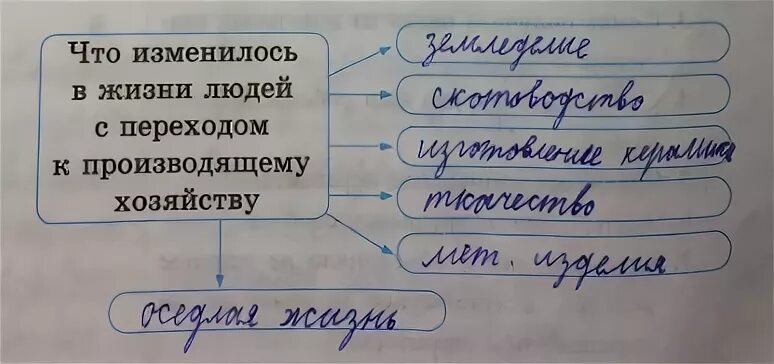 Что изменилось
в жизни людей
с переходом
к производящему
хозяйству
земледелие
скотоводство
изготовление керамики
ткачество
мет. изделия
оседлая жизнь